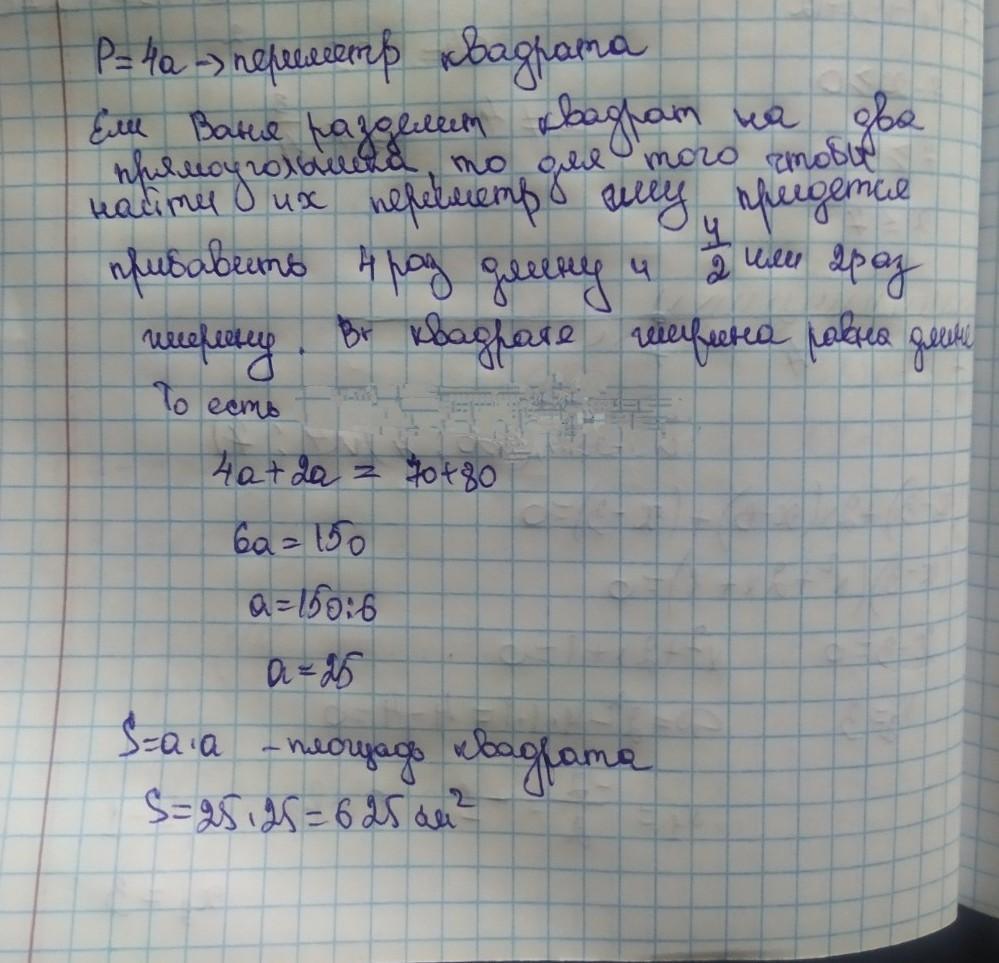 P=4a → периметр квадрата
Если Ваня разделит квадрат на два
прямоугольника, то для того чтобы
найти их периметр ему придется
прибавить 4 раз длину и 4/2 или 2 раз
ширину. В квадрате ширина равна длине
То есть
4a+2a = 70+80
6a=150
a=150:6
a=25
S=a·a - площадь квадрата
S=25·25=625 см²